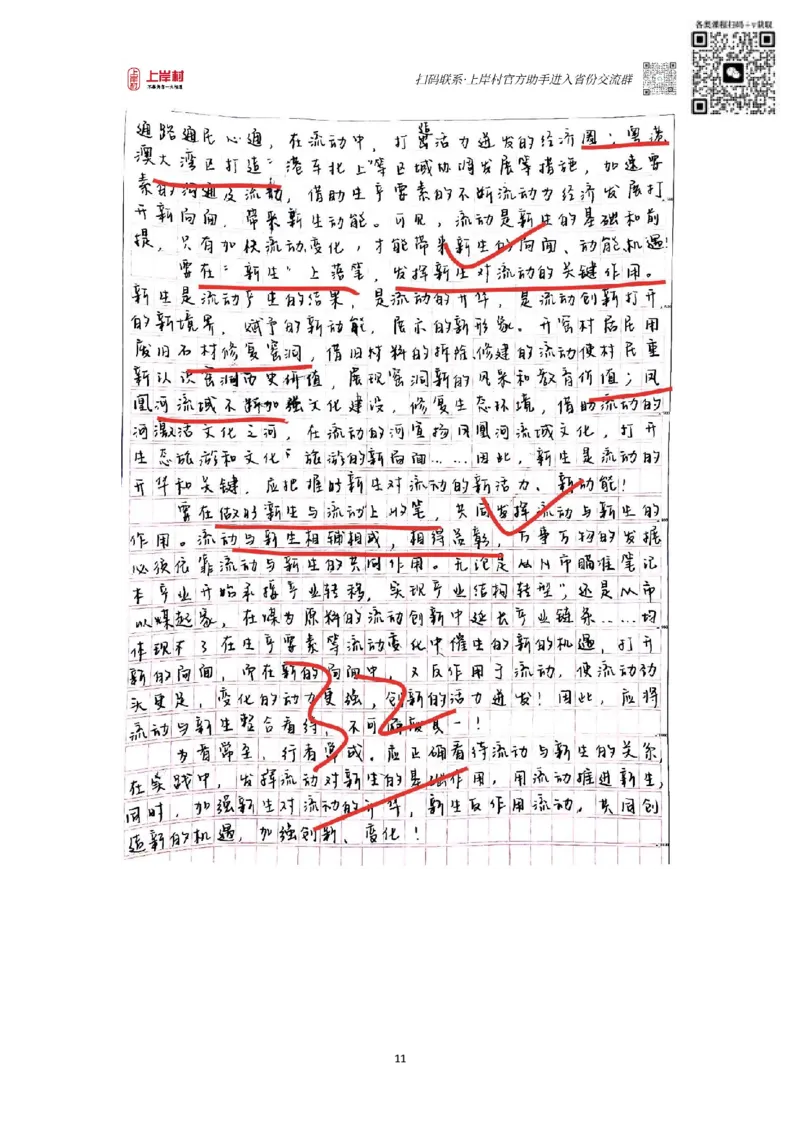 各类课程扫码+v获取
上岸村
扫码联系·上岸村官方助手进入省份交流群
通路通民心通，在流动中，打造活力迸发的经济圈；粤港
澳大湾区打造“港车北上”等区域协调发展等措施，加速要
素的沟通及流动，借助生产要素的不断流动为经济发展打
开新局面，带来新生动能。可见，流动是新生的基础和前
提，只有加快流动、变化，才能带来新生的局面、动能、机遇！
要在“新生”上落笔，发挥新生对流动的关键作用。
新生是流动产生的结果，是流动的升华，是流动创新打开
的新境界，赋予的新动能，展示的新形象。开窑村居民用
废旧石材修复窑洞，借旧材料的拆除、修建的流动使村民重
新认识窑洞历史价值，展现窑洞新的风景和教育价值；凤
凰河流域不断加强文化建设，修复生态环境，借助流动的
河激活文化之河，在流动的河宣扬凤凰河流域文化，打开
生态旅游和文化旅游的新局面……因此，新生是流动的
升华和关键，应把握时新生对流动的新活力、新动能！
要在做好新生与流动上收笔，共同发挥流动与新生的
作用。流动与新生相辅相成，相得益彰，万事万物的发展
必须依靠流动与新生的共同作用。无论是从N市瞄准笔记
本产业开始承接产业转移，实现产业结构转型，还是M市
以煤起家，在煤为原料的流动创新中延长产业链条……均
体现不了在生产要素等流动变化中催生的新的机遇，打开
新的局面，而在新的局面中，又反作用于流动，使流动劲
头更足，变化的动力更强，创新的活力迸发！因此，应将
流动与新生整合看待，不可偏废其一！
为者常至，行者常成。应正确看待流动与新生的关系，
在实践中，发挥流动对新生的基础作用，用流动推进新生，
同时，加强新生对流动的升华，新生反作用流动，共同创
造新的机遇，加强创新、变化！
32
11